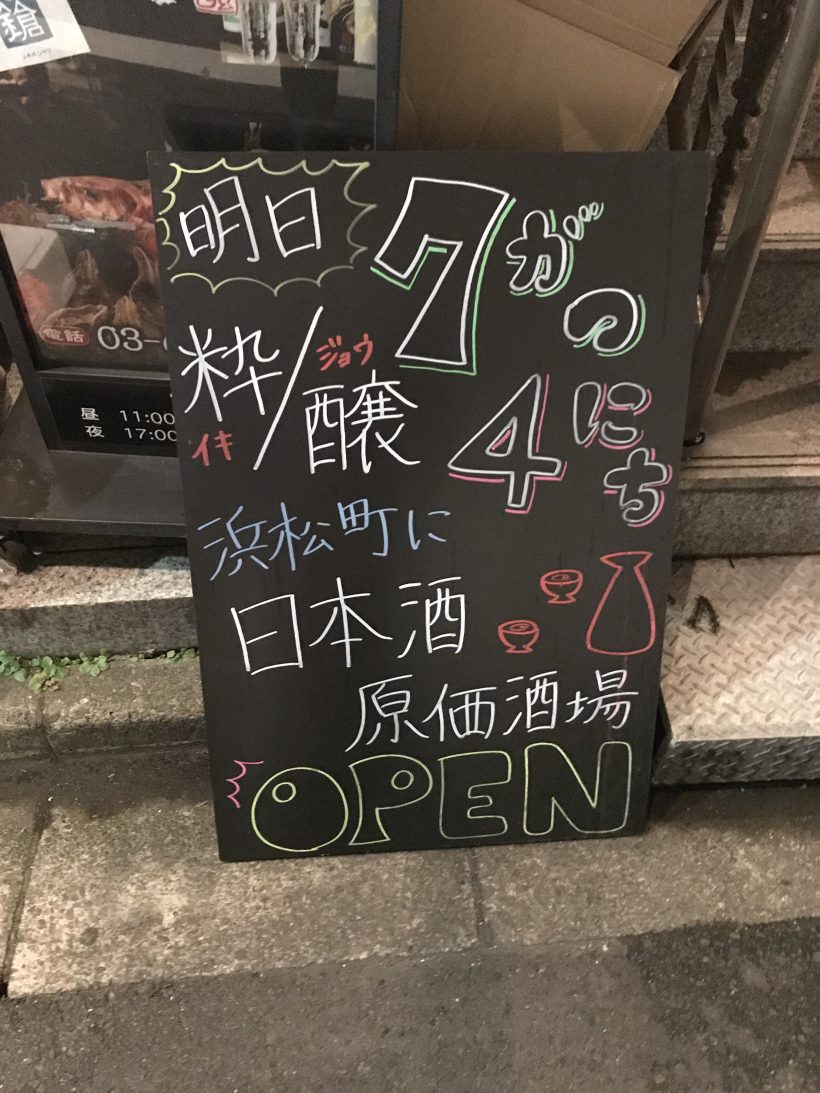 鎗
電話 03-
昼 11:00
夜 17:00
明日
7がつ
4にち
粋/醸
イキ
ジョウ
浜松町に
日本酒
原価酒場
OPEN